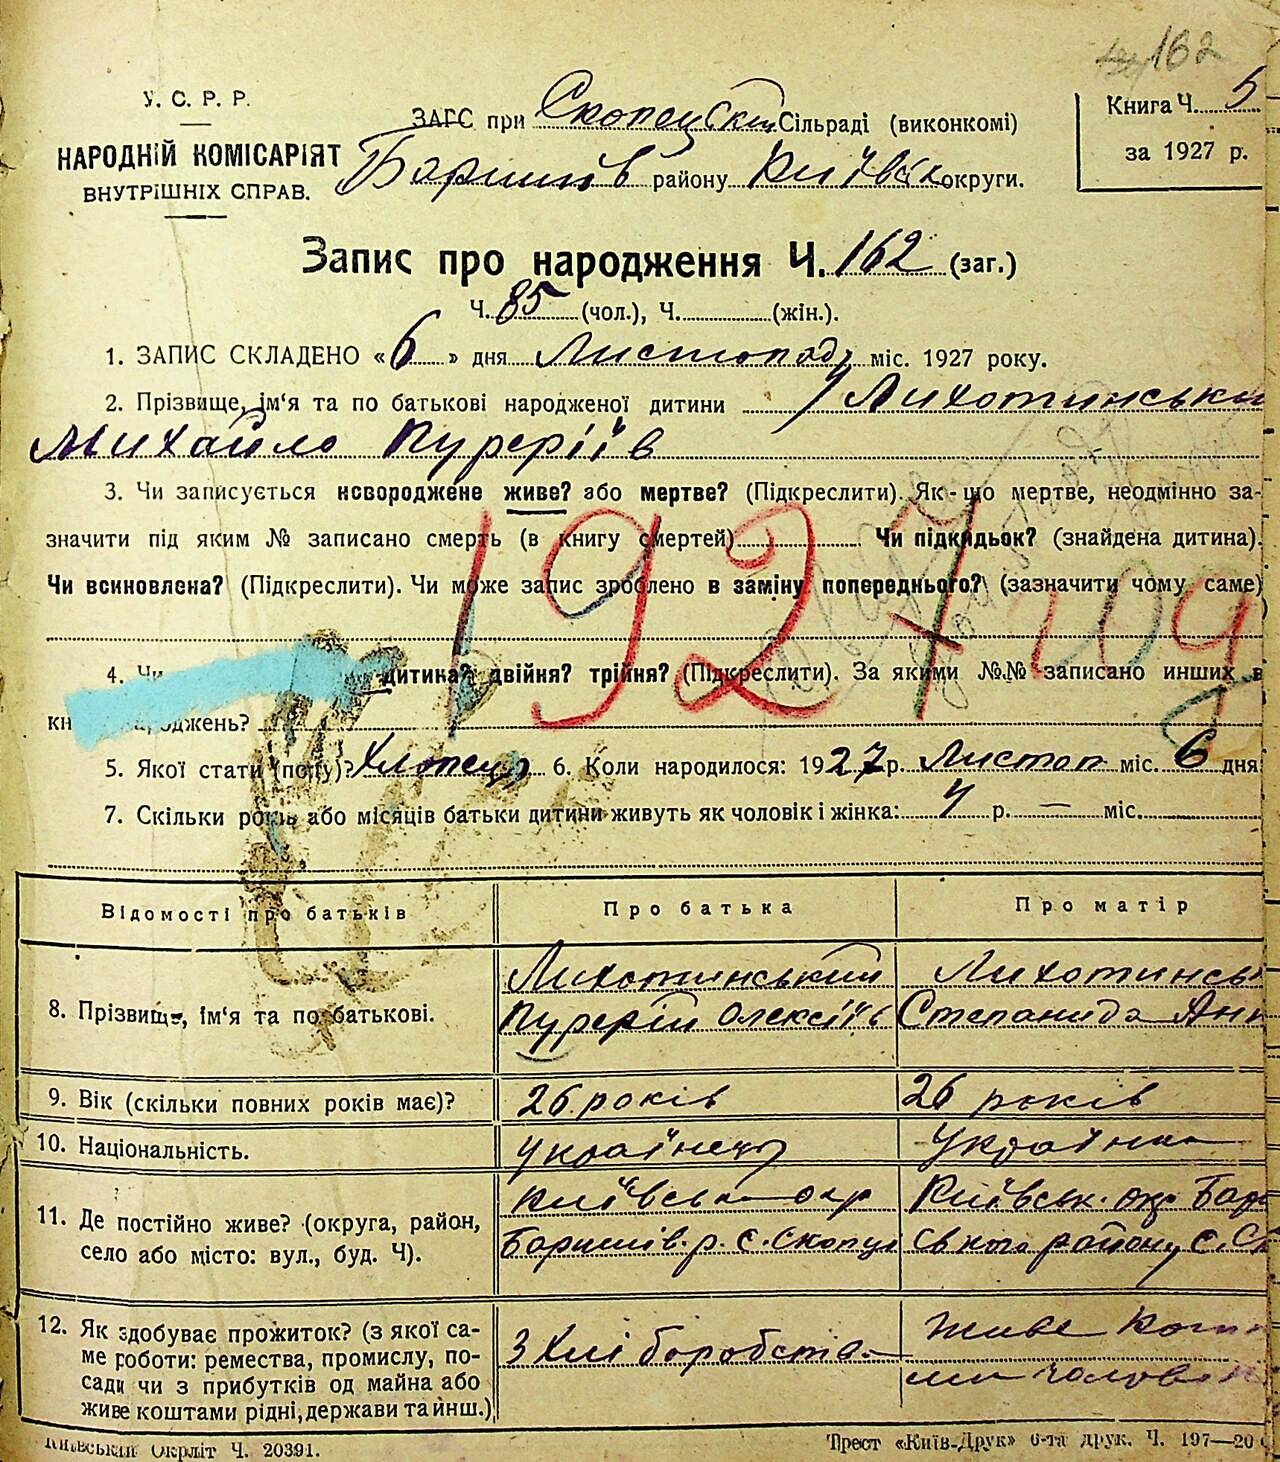 162
У. С. Р. Р.
НАРОДНІЙ КОМІСАРІЯТ
ВНУТРІШНІХ СПРАВ.
ЗАГС при Скопецькій Сільраді (виконкомі)
Баришів району Київськ округи.
Книга Ч. 5
за 1927 р.
Запис про народження Ч. 162 (заг.)
Ч. 85 (чол.), Ч. (жін.).
1. ЗАПИС СКЛАДЕНО «6» дня Листопаду міс. 1927 року.
2. Прізвище, ім'я та по батькові народженої дитини Лихотинськи
Михайло Пурфіїв
3. Чи записується новороджене живе? або мертве? (Підкреслити). Як-що мертве, неодмінно за-
значити під яким № записано смерть (в книгу смертей) Чи підкидьок? (знайдена дитина).
Чи всиновлена? (Підкреслити). Чи може запис зроблено в заміну попереднього? (зазначити чому саме)
1927
4. Чи дитина? двійня? трійня? (Підкреслити). За якими №№ записано инших в
кн роджень?
5. Якої стати (полу)? Хлопець 6. Коли народилося: 1927 р. Листоп міс. 6 дня
7. Скільки років або місяців батьки дитини живуть як чоловік і жінка: 4 р. — міс.
Відомості про батьків Про батька Про матір
8. Прізвище, ім'я та по батькові.
Лихотинський
Пурфій Олексіїв
Лихотинсь
Степанида
9. Вік (скільки повних років має)? 26 років 26 років
10. Національність. Українець Українка
11. Де постійно живе? (округа, район,
село або місто: вул., буд. Ч).
Київська окр
Баришів. р. с. Скопці
Київськ. окр Бар
ського району с. Ск
12. Як здобуває прожиток? (з якої са-
ме роботи: ремества, промислу, по-
сади чи з прибутків од майна або
живе коштами рідні, держави та инш.)
З хліборобства
живе кошт
ми чолов
Київський Окрліт Ч. 20391.
Трест «Київ-Друк» 6-та друк. Ч. 197—20